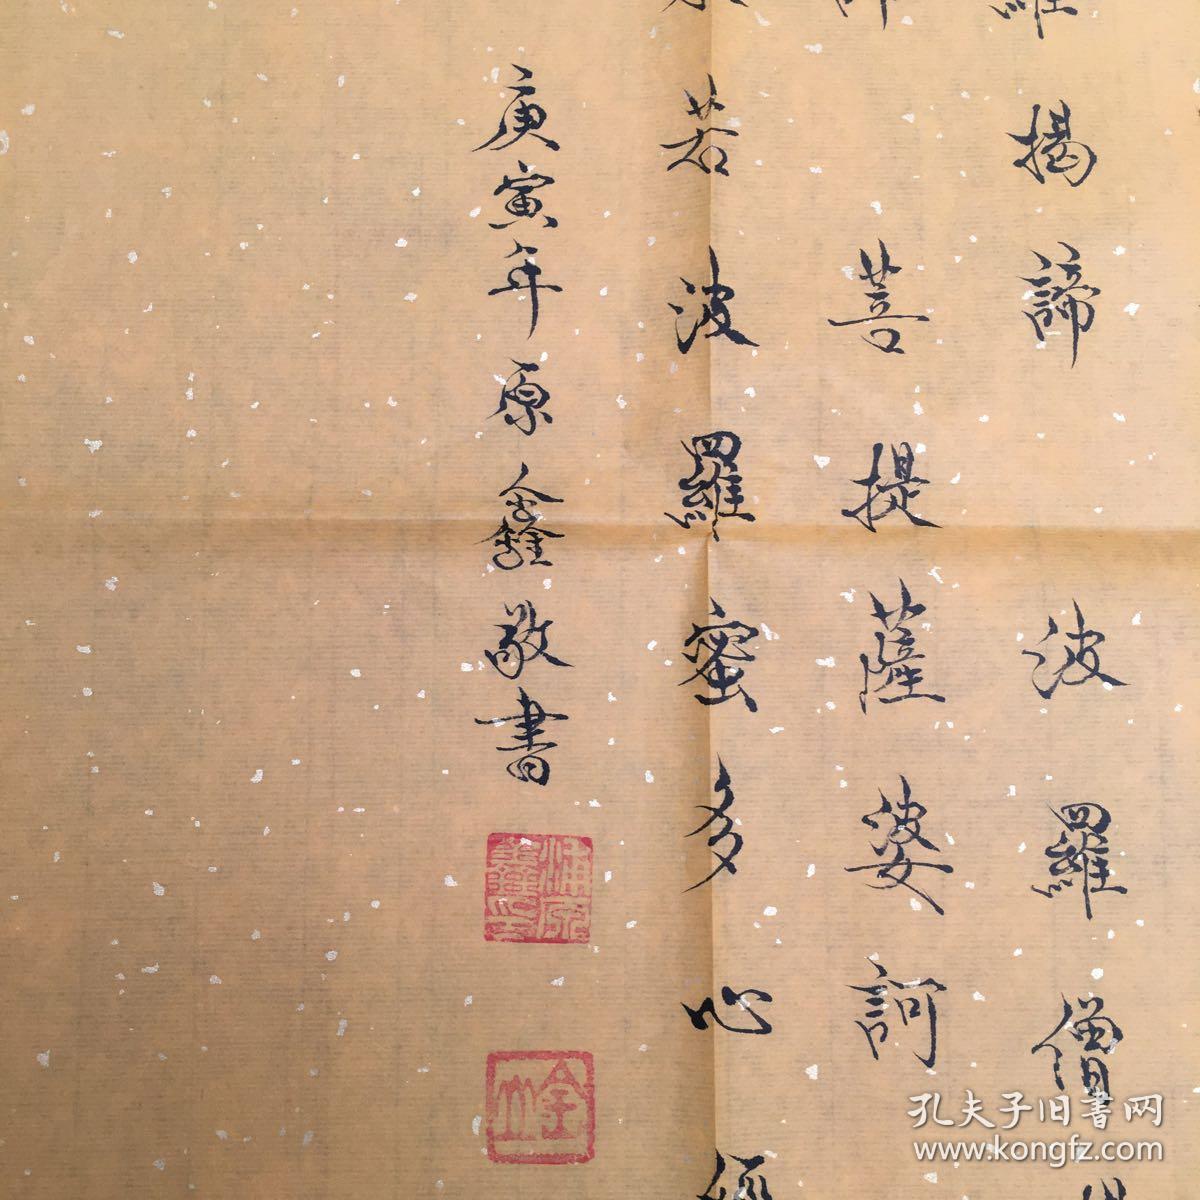 羅揭諦波羅僧
諦菩提薩婆訶
若波羅蜜多心經
庚寅年原鑫敬書
金山
孔夫子旧書网
www.kongfz.com